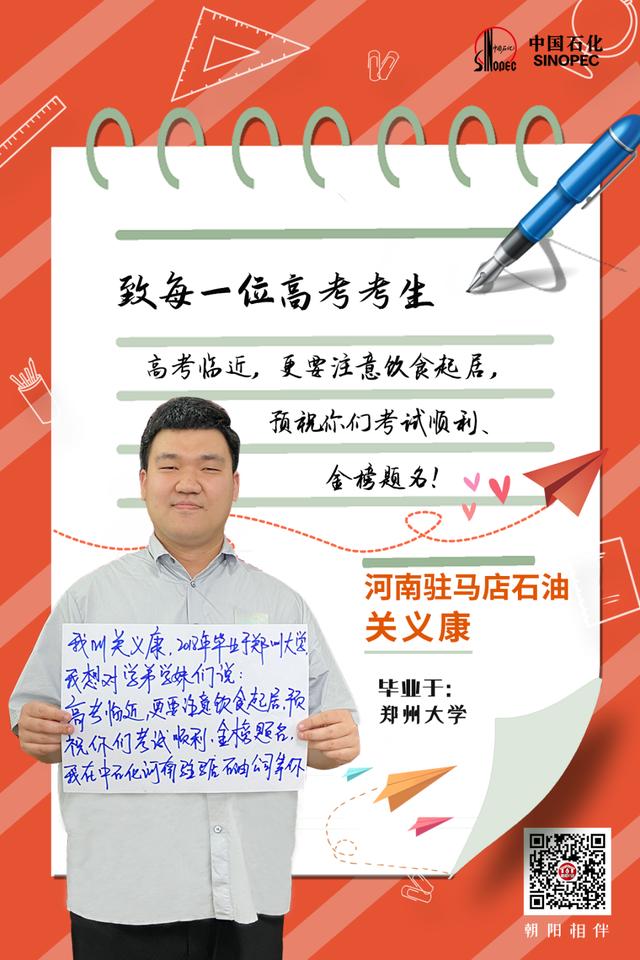 中国石化
SINOPEC
SINOPEC
致每一位高考考生
高考临近，更要注意饮食起居，
预祝你们考试顺利、
金榜题名！
河南驻马店石油
关义康
毕业于：
郑州大学
我叫关义康，2018年毕业于郑州大学，
我想对学弟学妹们说：
高考临近，更要注意饮食起居，预
祝你们考试顺利、金榜题名，
我在中石化河南驻马店石油公司等你
朝阳相伴